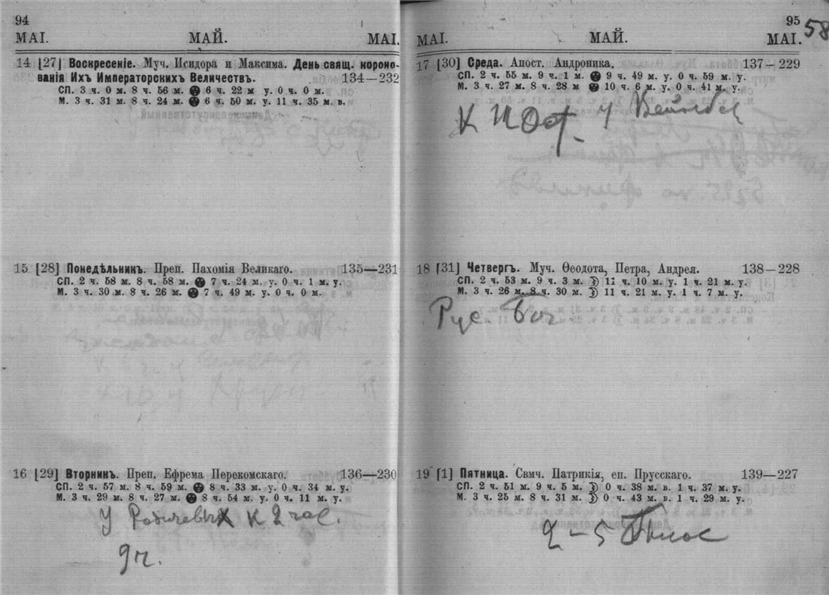 94
MAI. МАЙ. MAI.
14 [27] Воскресеніе. Муч. Исидора и Максима. День свящ. короно-
ванія Ихъ Императорскихъ Величествъ. 134—232
СП. 3 ч. 0 м. 8 ч. 56 м. 6 ч. 22 м у. 0 ч. 0 м.
М. 3 ч. 31 м. 8 ч. 24 м. 6 ч. 50 м. у. 11 ч. 35 м. в.
15 [28] Понедѣльникъ. Преп. Пахомія Великаго. 135—231
СП. 2 ч. 58 м. 8 ч. 58 м. 7 ч. 24 м. у. 0 ч. 1 м. у.
М. 3 ч. 30 м. 8 ч. 26 м. 7 ч. 49 м. у. 0 ч. 0 м.
16 [29] Вторникъ. Преп. Ефрема Перекомскаго. 136—230
СП. 2 ч. 57 м. 8 ч. 59 м. 8 ч. 33 м. у. 0 ч. 34 м. у.
М. 3 ч. 29 м. 8 ч. 27 м. 8 ч. 54 м. у. 0 ч. 11 м. у.
У Родичевых к 2 час.
9 ч.
95
58
MAI. МАЙ. MAI.
17 [30] Среда. Апост. Андроника. 137—229
СП. 2 ч. 55 м. 9 ч. 1 м. 9 ч. 49 м. у. 0 ч. 59 м. у.
М. 3 ч. 27 м. 8 ч. 28 м 10 ч. 6 м. у. 0 ч. 41 м. у.
К у
18 [31] Четвергъ. Муч. Ѳеодота, Петра, Андрея. 138—228
СП. 2 ч. 53 м. 9 ч. 3 м. 11 ч. 10 м. у. 1 ч. 21 м. у.
М. 3 ч. 26 м. 8 ч. 30 м. 11 ч. 21 м. у. 1 ч. 7 м. у.
Рус. Бог.
19 [1] Пятница. Свмч. Патрикія, еп. Прусскаго. 139—227
СП. 2 ч. 51 м. 9 ч. 5 м. 0 ч. 38 м. в. 1 ч. 37 м. у.
М. 3 ч. 25 м. 8 ч. 31 м. 0 ч. 43 м. в. 1 ч. 29 м. у.
2—5